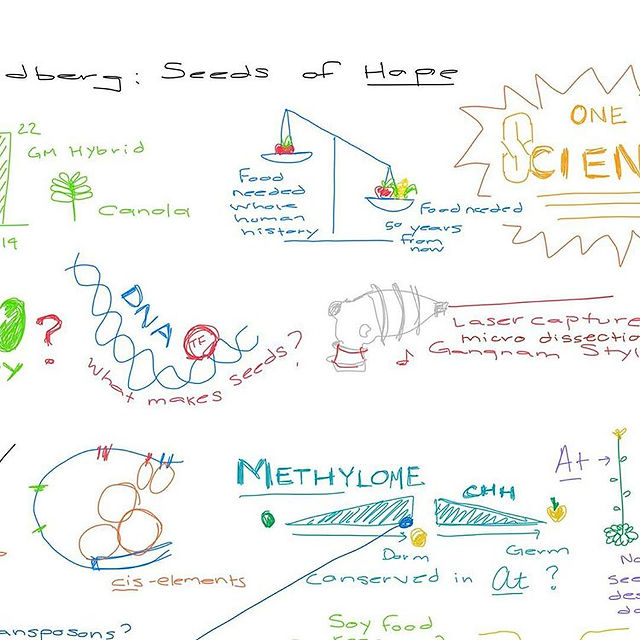 dberg: Seeds of Hope
22
GM Hybrid
Canola
14
Food
needed
whole
human
history
Food needed
50 years
from
now
ONE
SCIEN
?
y
DNA
TF
What makes seeds?
Laser capture
micro dissectio
Gangnam Styl
cis-elements
METHYLOME
CHH
Dorm
Germ
Conserved in At ?
At
No
see
des
do
ansposons?
Soy food